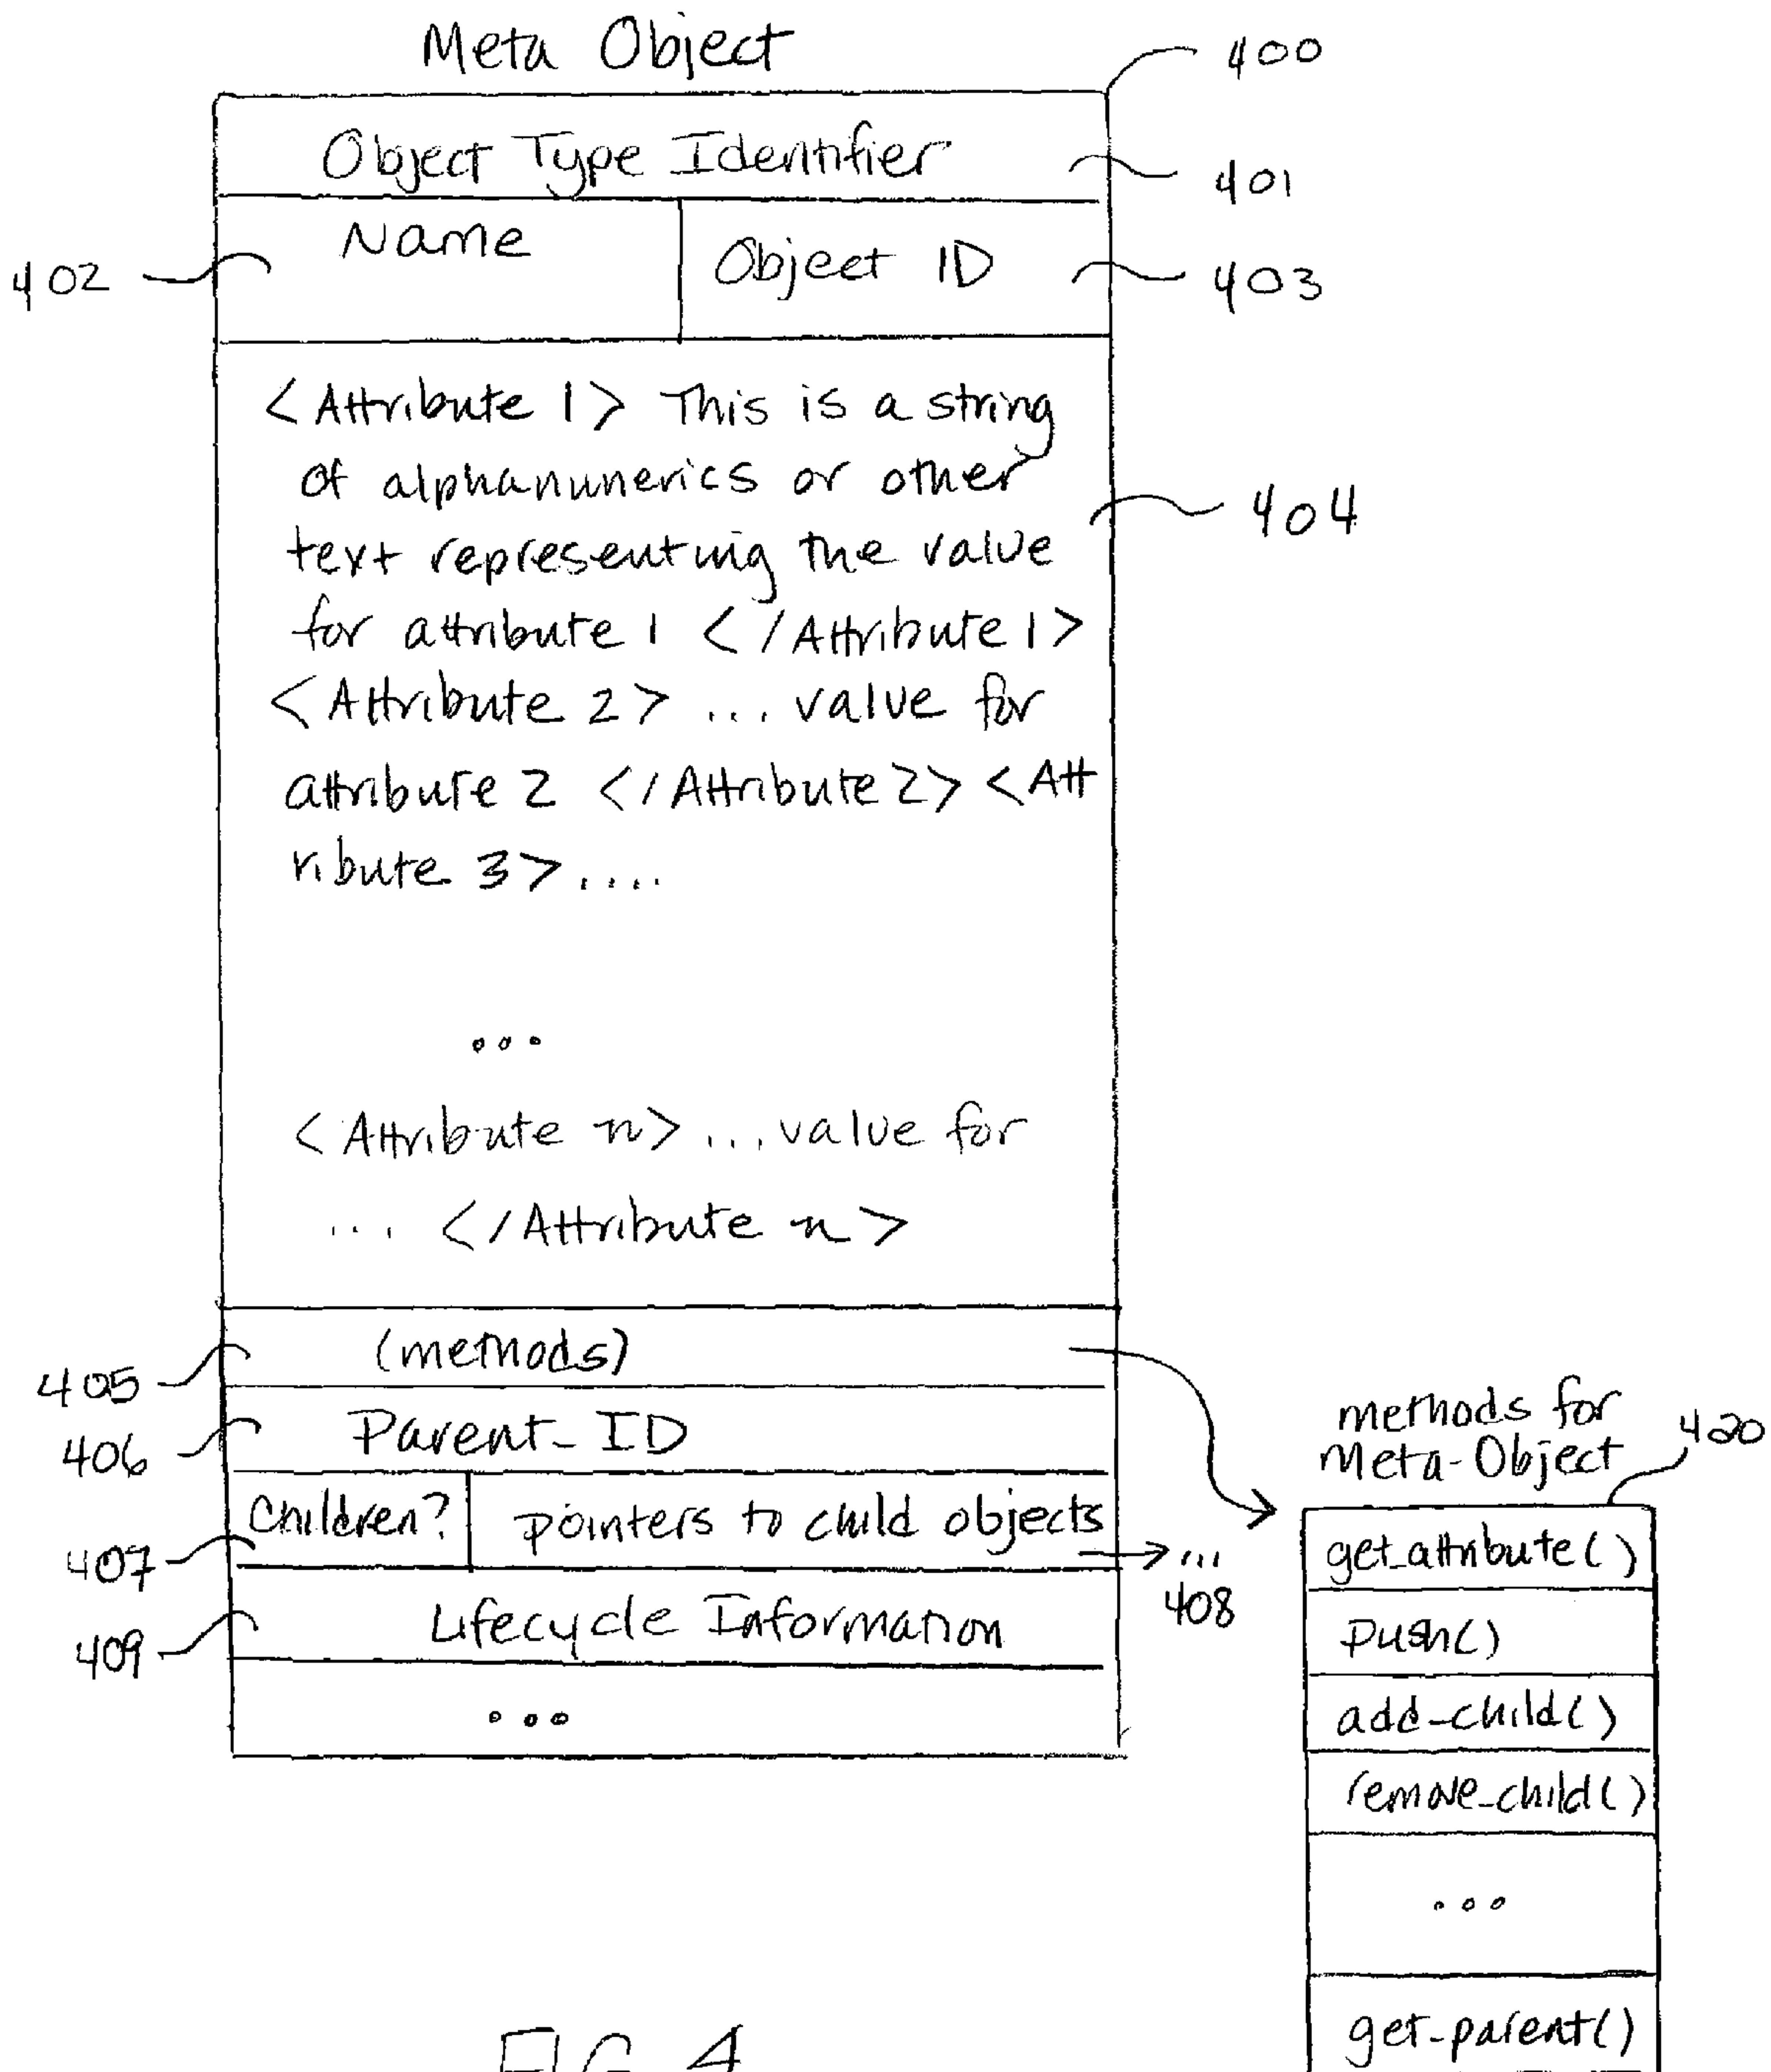 Meta Object
400
Object Type Identifier
401
Name
Object ID
402
403
<Attribute 1> This is a string
of alphanunerics or other
text representing the value
for attribute 1 </Attribute 1>
404
<Attribute 2> ... value for
attribute 2 </Attribute 2> <Att
ribute 3> ....
...
<Attribute n> ... value for
... </Attribute n>
(methods)
405
Parent_ID
406
Children?
pointers to child objects
407
...
408
Lifecycle Information
409
...
methods for
Meta-Object
420
get_attribute()
push()
add_child()
remove_child()
...
get_parent()
FIG. 4